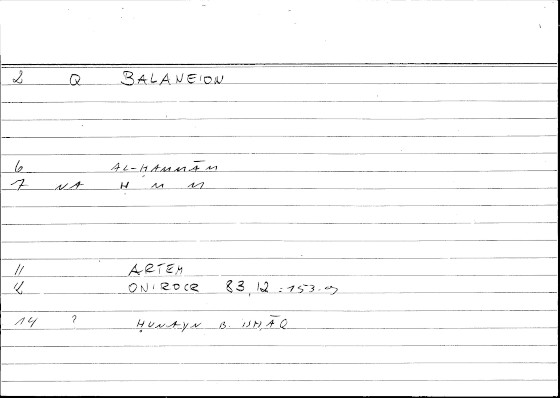 2 Q BALANEION
6 AL-ḤAMMĀM
7 NA Ḥ M M
11 ARTEM
12 ONIROCR 83,12 : 153.
14 ? ḤUNAYN B. ISḤĀQ